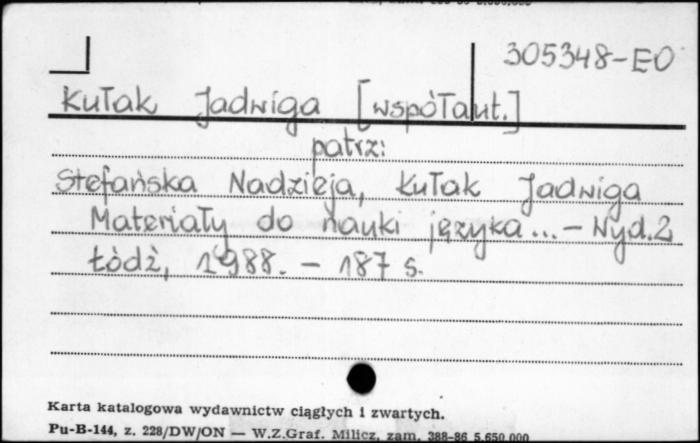 305348-EO
Kułak Jadwiga [współaut.]
patrz:
Stefańska Nadzieja, Kułak Jadwiga
Materiały do nauki języka... - Wyd.2
Łódź, 1988. - 187 s.
Karta katalogowa wydawnictw ciągłych i zwartych.
Pu-B-144, z. 228/DW/ON — W.Z.Graf. Milicz, zam. 388-86 5.650.000